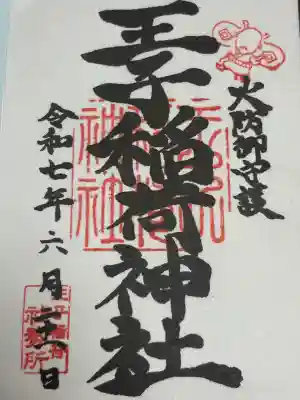 火防御守護
王子稲荷神社
令和七年六月二十八日
王子稲荷
社務所